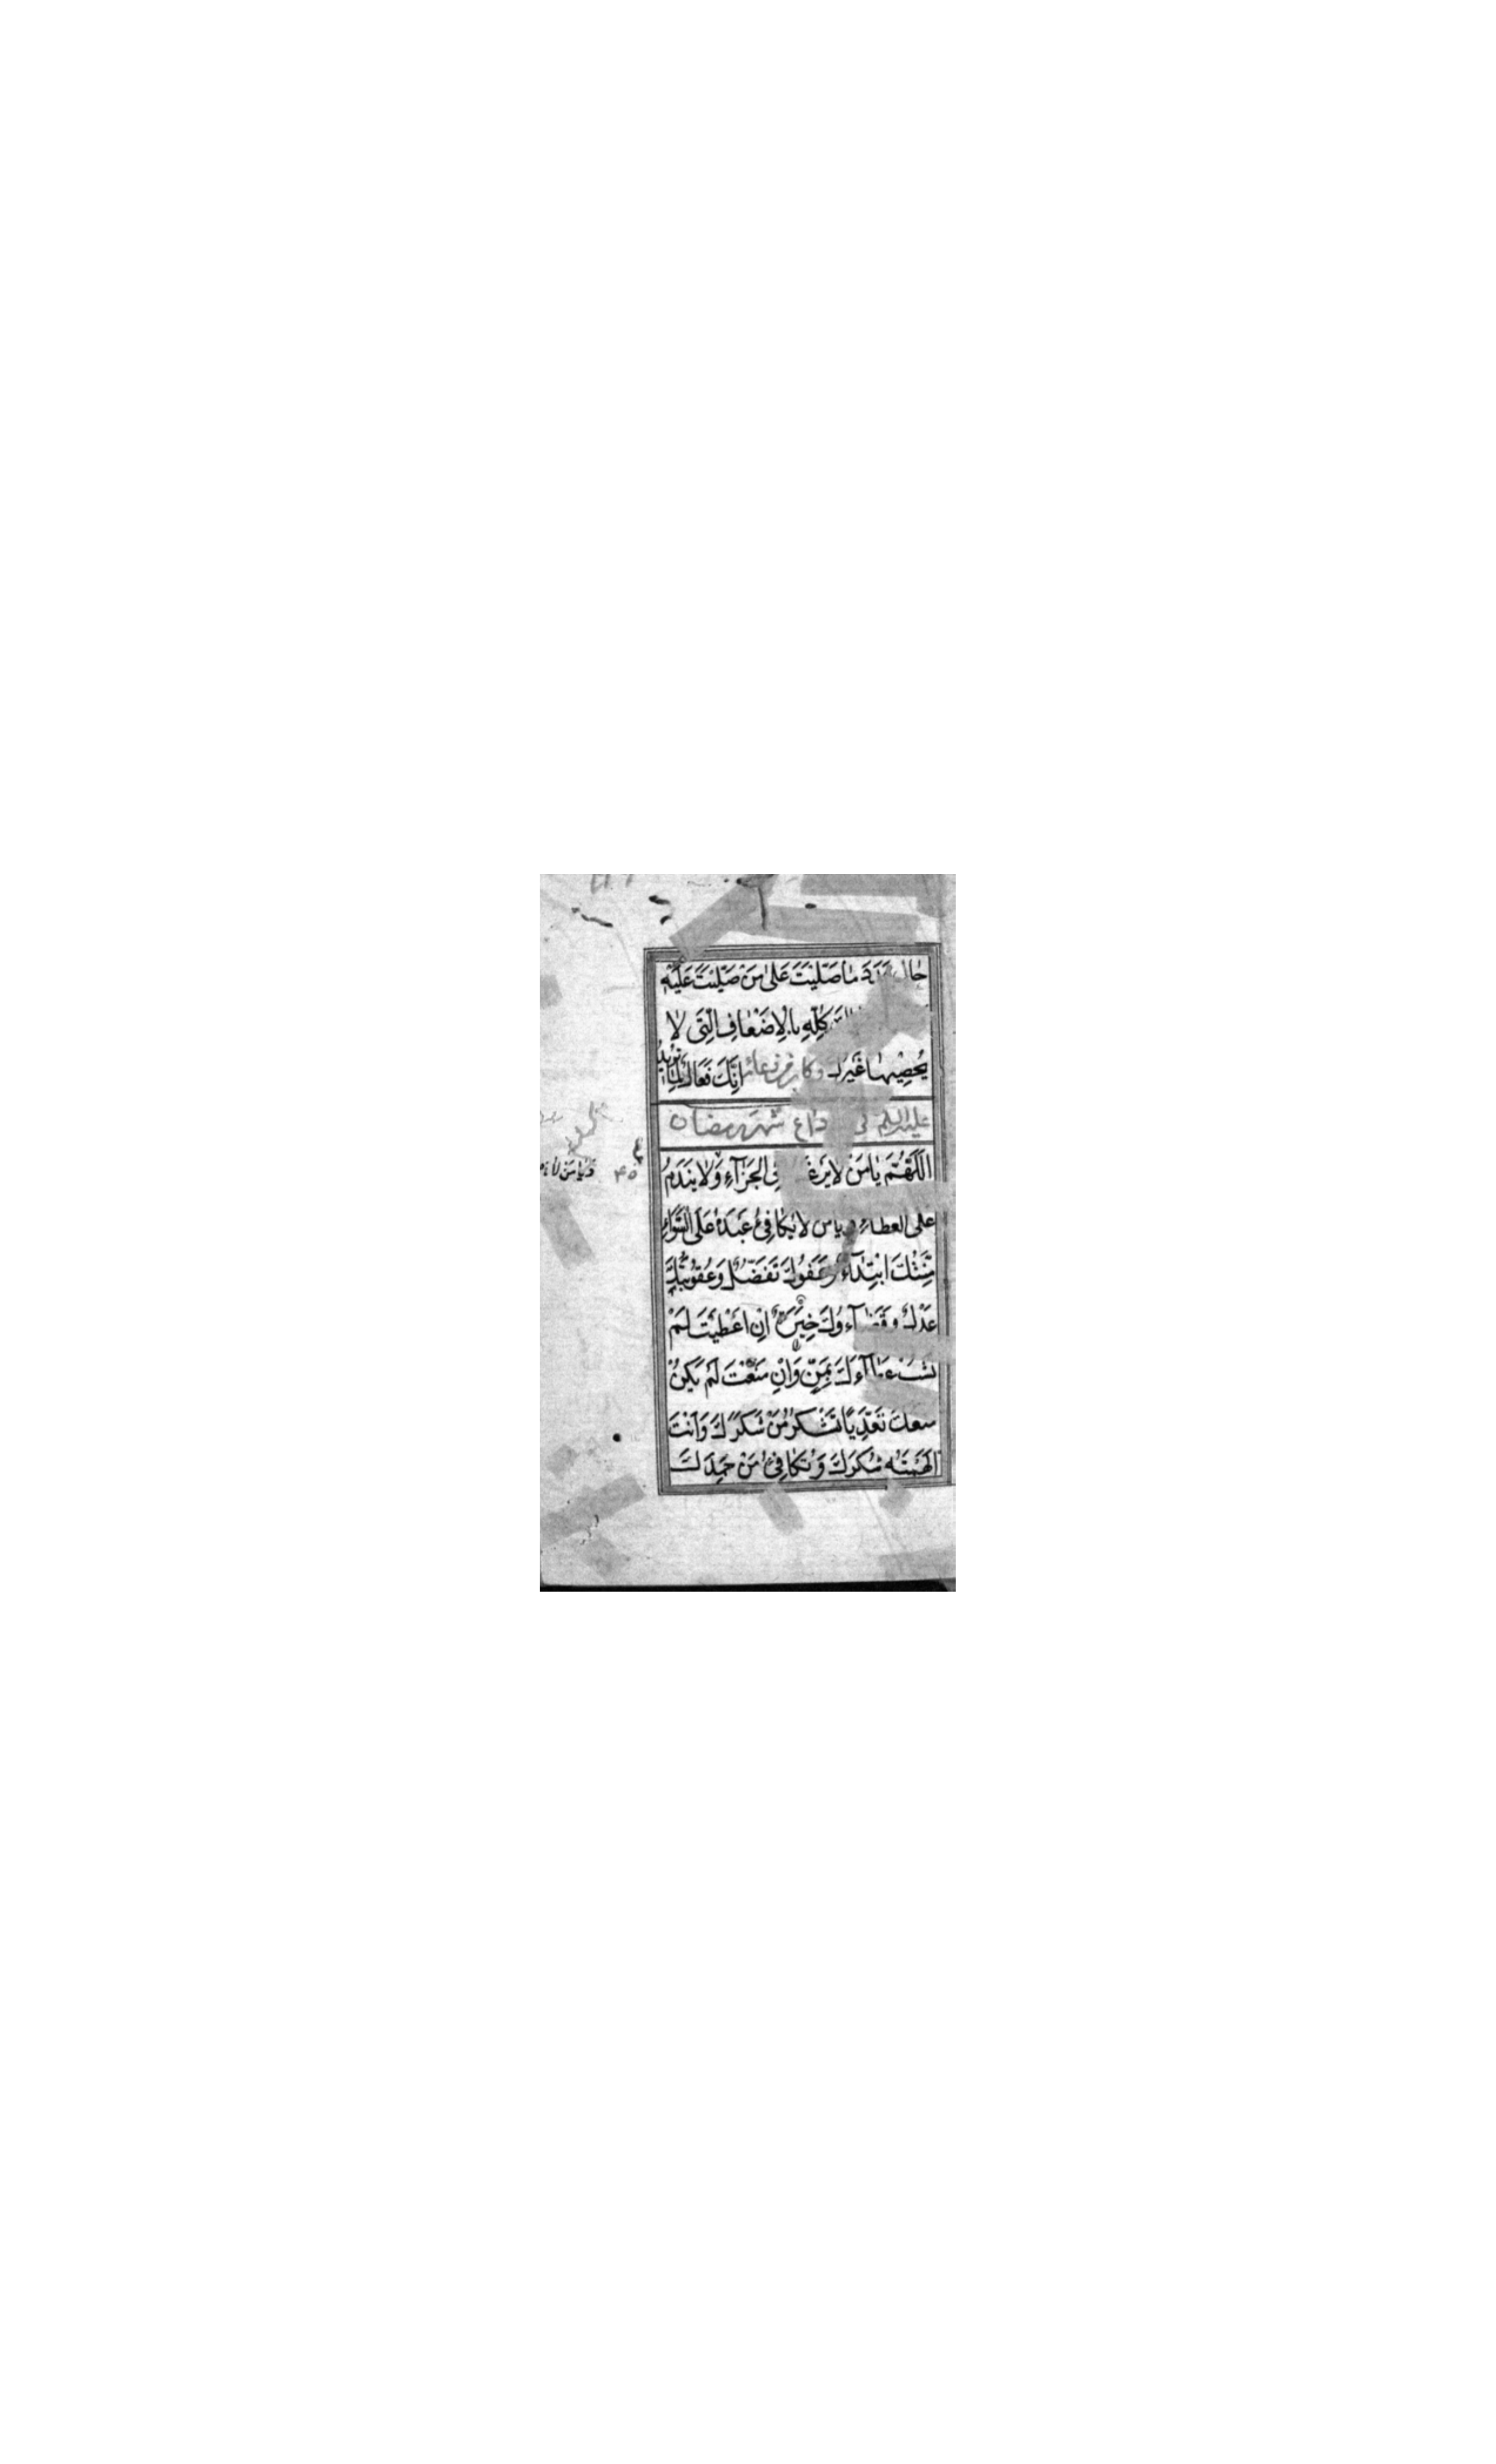 حَالٍ عَدَدَ مَا صَلَّيْتَ عَلٰى مَنْ صَلَّيْتَ عَلَيْهِ
كُلِّهِ بِالْاَضْعَافِ الَّتِى لَا
يُحْصِيْهَا غَيْرُكَ اِنَّكَ فَعَّالٌ لِمَا تُرِيْدُ وكان من دعائه
عليه السلم فى وداع شهر رمضان
اَللّٰهُمَّ يَا مَنْ لَا يَرْغَبُ فِى الْجَزَآءِ وَلَا يَنْدَمُ
عَلَى الْعَطَآءِ وَيَا مَنْ لَا يُكَافِئُ عَبْدَهُ عَلَى السَّوَآءِ
مِنَّتُكَ ابْتِدَآءٌ وَعَفْوُكَ تَفَضُّلٌ وَعُقُوْبَتُكَ
عَدْلٌ وَقَضَآءُكَ خِيَرَةٌ اِنْ اَعْطَيْتَ لَمْ
تَشُبْ عَطَآءَكَ بِمَنٍّ وَاِنْ مَنَعْتَ لَمْ يَكُنْ
مَنْعُكَ تَعَدِّيًا تَشْكُرُ مَنْ شَكَرَكَ وَاَنْتَ
اَلْهَمْتَهُ شُكْرَكَ وَتُكَافِئُ مَنْ حَمِدَكَ
۴۵
وَيَا مَنْ لَا